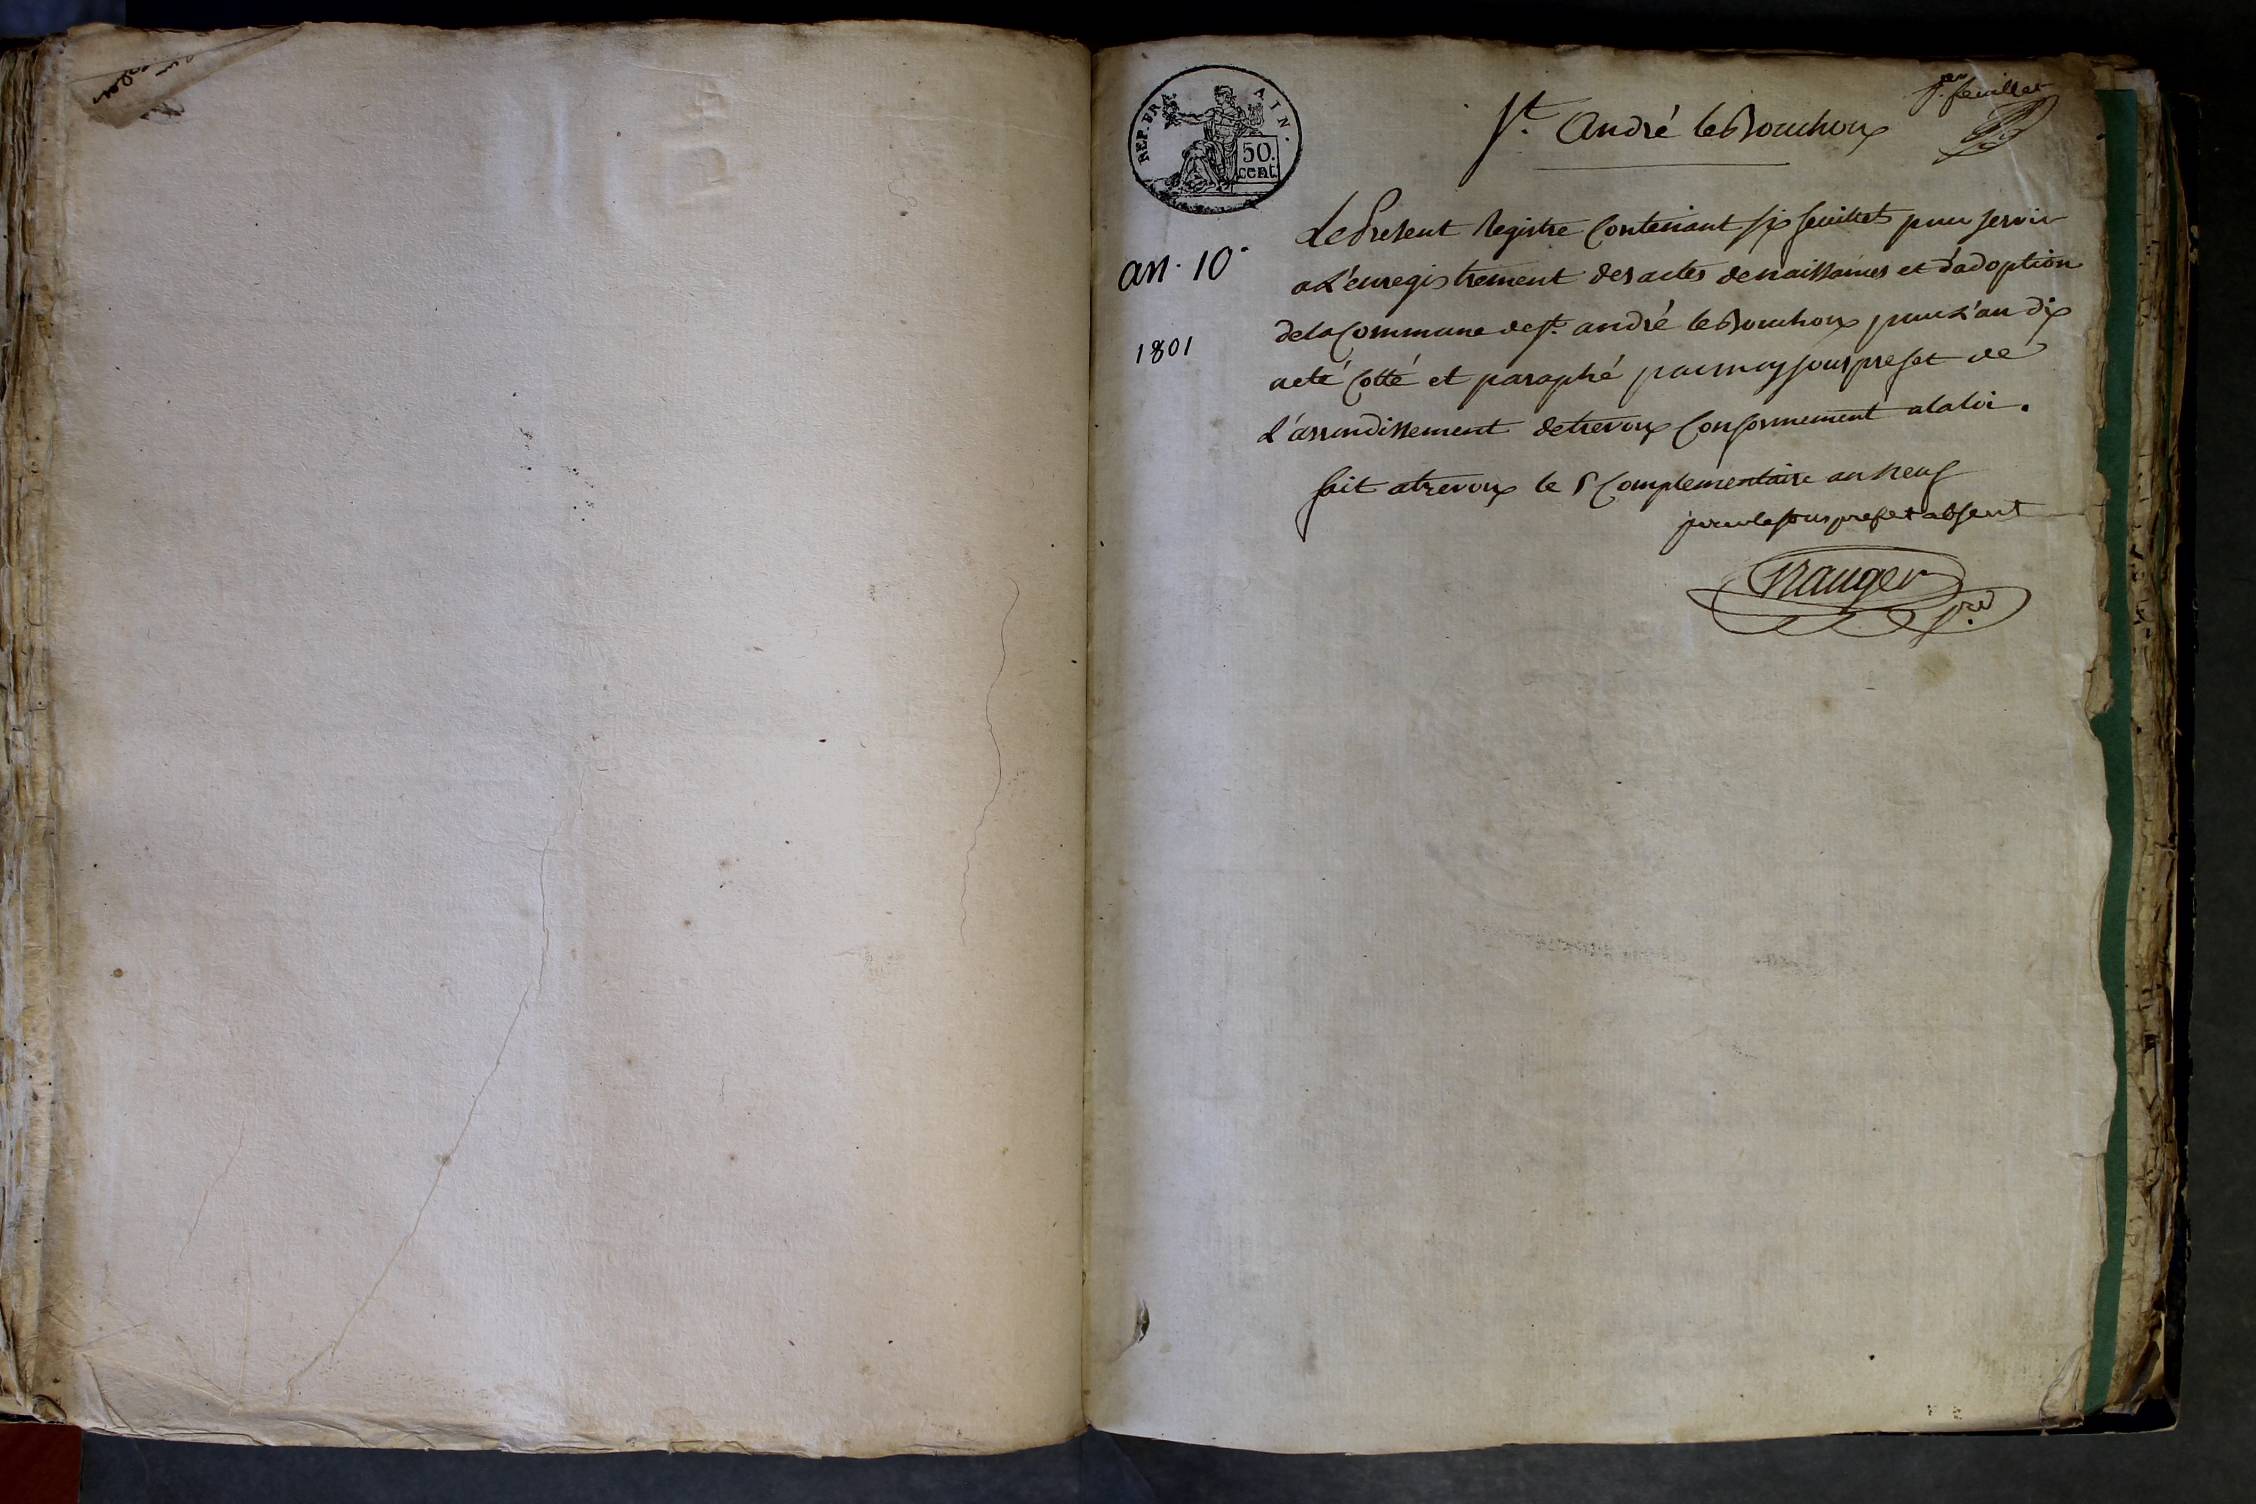 1er feuillet
St. André le Bouchoux
REP. FRA. AIN.
50. cent.
an. 10.
1801
Le Present Registre Contenant six feuillets pour servir
a L'enregistrement des actes de naissances et d'adoption
de la Commune de St. andré le Bouchoux pour L'an dix
acté Cotté et paraphé par moy sous prefet de
L'arrondissement de trevoux Conformement a la loi.
fait a trevoux le 5 Complementaire an neuf
pour le sous prefet absent